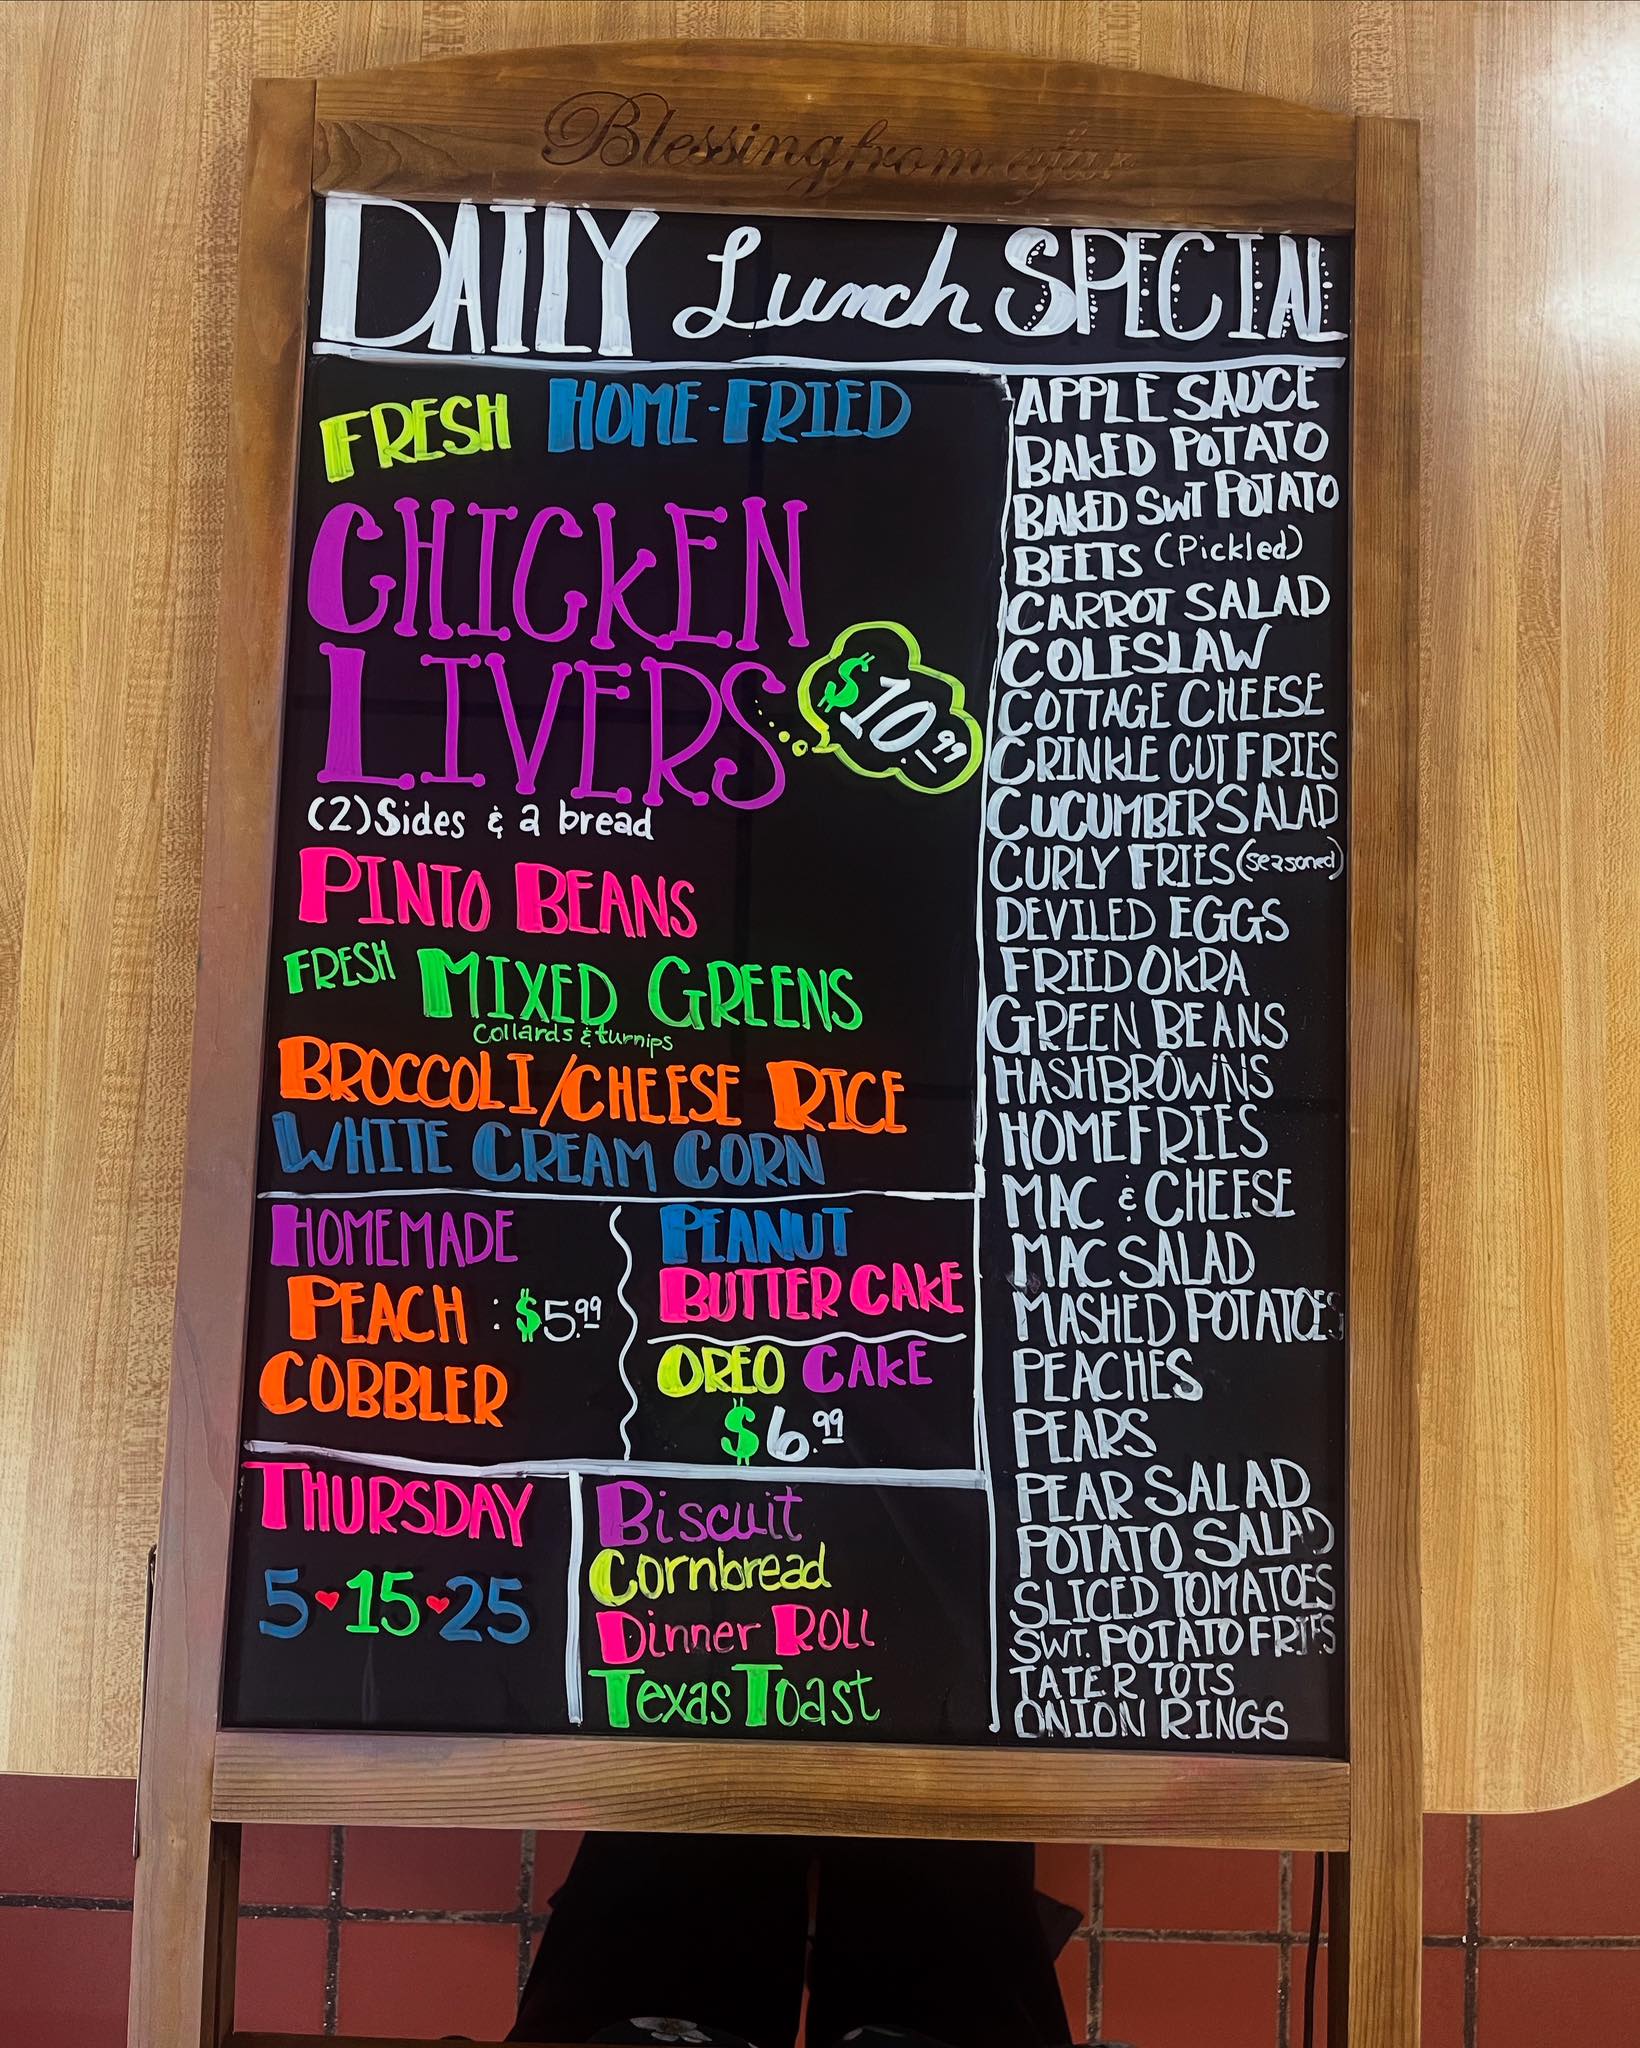 Blessing from afar
DAILY Lunch SPECIAL
FRESH HOME-FRIED
CHICKEN
LIVERS
$10.99
(2) Sides & a bread
PINTO BEANS
FRESH MIXED GREENS
collards & turnips
BROCCOLI/CHEESE RICE
WHITE CREAM CORN
HOMEMADE
PEACH : $5.99
COBBLER
PEANUT
BUTTER CAKE
OREO CAKE
$6.99
THURSDAY
5♥15♥25
Biscuit
Cornbread
Dinner Roll
Texas Toast
APPLE SAUCE
BAKED POTATO
BAKED SWT POTATO
BEETS (Pickled)
CARROT SALAD
COLESLAW
COTTAGE CHEESE
CRINKLE CUT FRIES
CUCUMBER SALAD
CURLY FRIES (seasoned)
DEVILED EGGS
FRIED OKRA
GREEN BEANS
HASHBROWNS
HOMEFRIES
MAC & CHEESE
MAC SALAD
MASHED POTATOES
PEACHES
PEARS
PEAR SALAD
POTATO SALAD
SLICED TOMATOES
SWT. POTATO FRIES
TATER TOTS
ONION RINGS